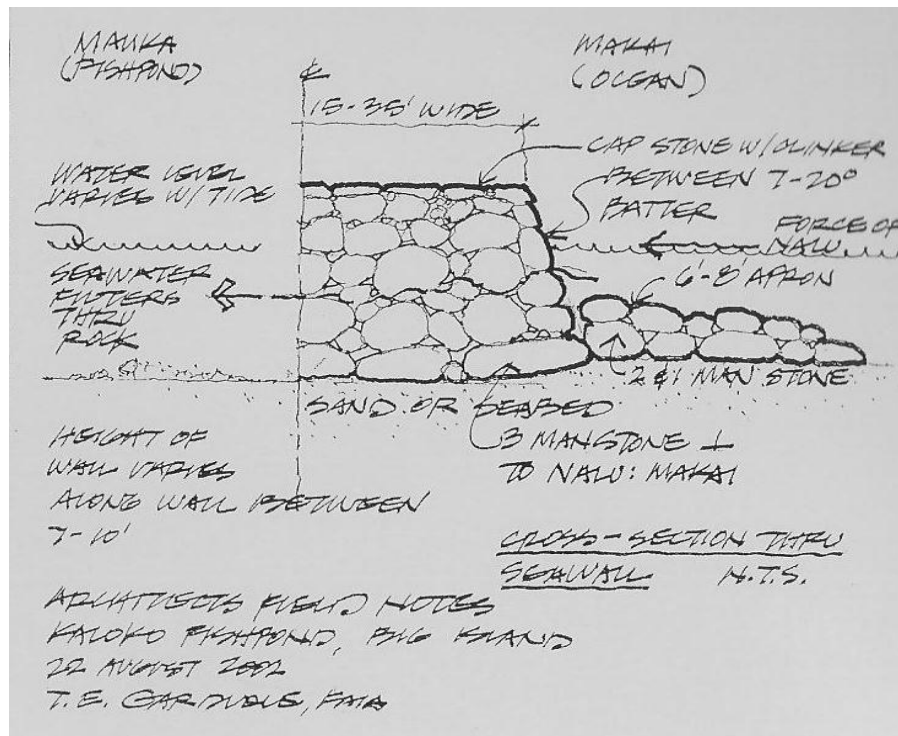 MAUKA
(FISHPOND)
MAKAI
(OCEAN)
℄
15-35' WIDE
CAP STONE W/ CLINKER
BETWEEN 7-20°
BATTER
WATER LEVEL
VARIES W/ TIDE
FORCE OF
NALU
SEAWATER
FILTERS
THRU
ROCK
6'-8' APRON
2 & 1 MAN STONE
SAND OR SEABED
3 MAN STONE ⊥
TO NALU: MAKAI
HEIGHT OF
WALL VARIES
ALONG WALL BETWEEN
7-10'
CROSS-SECTION THRU
SEAWALL N.T.S.
ARCHITECTS FIELD NOTES
KALOKO FISHPOND, BIG ISLAND
22 AUGUST 2002
T.E. FAIA